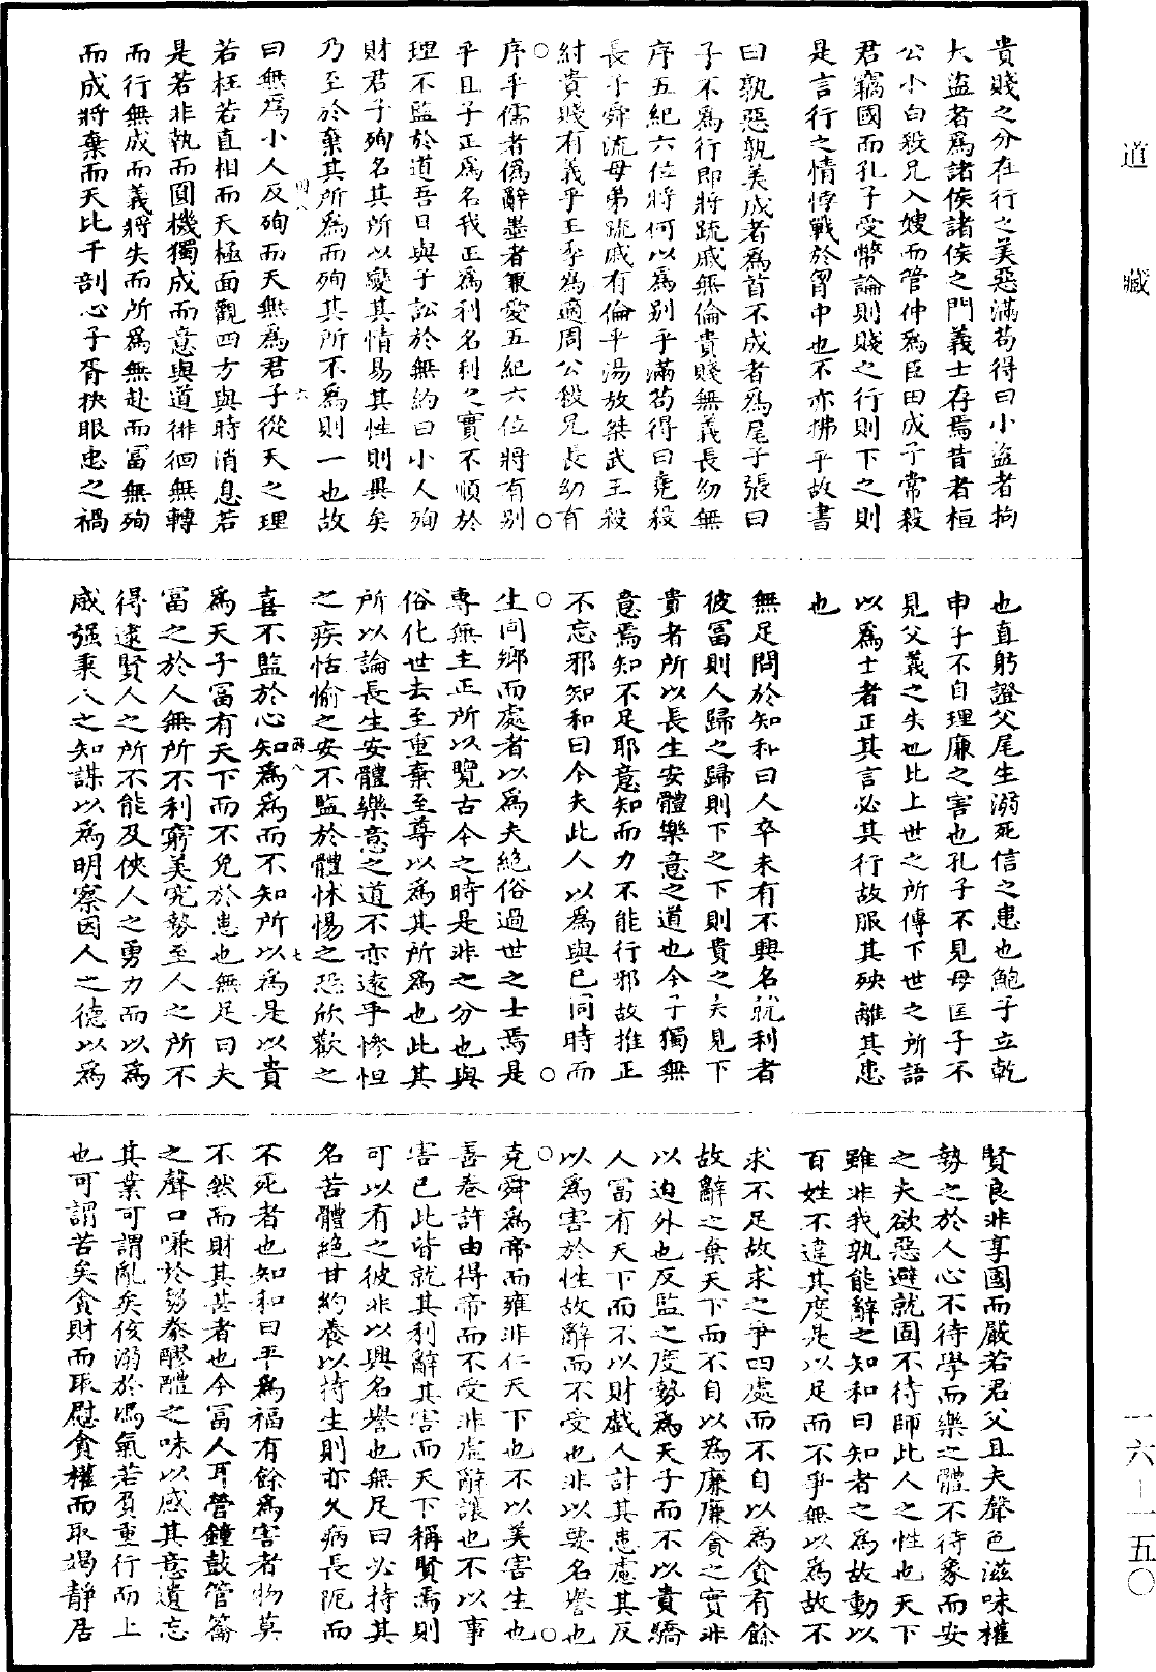 道藏
貴賤之分在行之美惡滿苟得曰小盜者拘
大盜者為諸侯諸侯之門義士存焉昔者桓
公小白殺兄入嫂而管仲為臣田成子常殺
君竊國而孔子受幣論則賤之行則下之則
是言行之情悖戰於胷中也不亦拂乎故書
曰孰惡孰美成者為首不成者為尾子張曰
子不為行即將疏戚無倫貴賤無義長幼無
序五紀六位將何以為別乎滿苟得曰堯殺
長子舜流母弟疏戚有倫乎湯放桀武王殺
紂貴賤有義乎王季為適周公殺兄長幼有
序乎儒者偽辭墨者兼愛五紀六位將有別
乎且子正為名我正為利名利之實不順於
理不監於道吾日與子訟於無約曰小人殉
財君子殉名其所以變其情易其性則異矣
乃至於棄其所為而殉其所不為則一也故
曰無為小人反殉而天無為君子從天之理
若枉若直相而天極面觀四方與時消息若
是若非執而圓機獨成而意與道徘徊無轉
而行無成而義將失而所為無赴而冨無殉
而成將棄而天比干剖心子胥抉眼忠之禍
也直躬證父尾生溺死信之患也鮑子立乾
申子不自理廉之害也孔子不見母匡子不
見父義之失也比上世之所傳下世之所語
以為士者正其言必其行故服其殃離其患
也
無足問於知和曰人卒未有不興名就利者
彼冨則人歸之歸則下之下則貴之夫見下
貴者所以長生安體樂意之道也今子獨無
意焉知不足耶意知而力不能行邪故推正
不忘邪知和曰今夫此人以為與己同時而
生同鄉而處者以為夫絕俗過世之士焉是
專無主正所以覽古今之時是非之分也與
俗化世去至重棄至尊以為其所為也此其
所以論長生安體樂意之道不亦遠乎慘怛
之疾恬愉之安不監於體怵惕之恐欣歡之
喜不監於心知為為而不知所以為是以貴
為天子冨有天下而不免於患也無足曰夫
冨之於人無所不利窮美究勢至人之所不
得逮賢人之所不能及俠人之勇力而以為
威强秉人之知謀以為明察因人之德以為
賢良非享國而嚴若君父且夫聲色滋味權
勢之於人心不待學而樂之體不待象而安
之夫欲惡避就固不待師此人之性也天下
雖非我孰能辭之知和曰知者之為故動以
百姓不違其度是以足而不爭無以為故不
求不足故求之爭四處而不自以為貪有餘
故辭之棄天下而不自以為廉廉貪之實非
以迫外也反監之度勢為天子而不以貴驕
人冨有天下而不以財戲人計其患慮其反
以為害於性故辭而不受也非以要名譽也
堯舜為帝而雍非仁天下也不以美害生也
善卷許由得帝而不受非虛辭讓也不以事
害己此皆就其利辭其害而天下稱賢焉則
可以有之彼非以興名譽也無足曰必持其
名苦體絕甘約養以持生則亦久病長阨而
不死者也知和曰平為福有餘為害者物莫
不然而財其甚者也今冨人耳營鐘鼓管籥
之聲口嗛於芻豢醪醴之味以感其意遺忘
其業可謂亂矣侅溺於馮氣若負重行而上
也可謂苦矣貪財而取慰貪權而取竭靜居
一六—一五〇